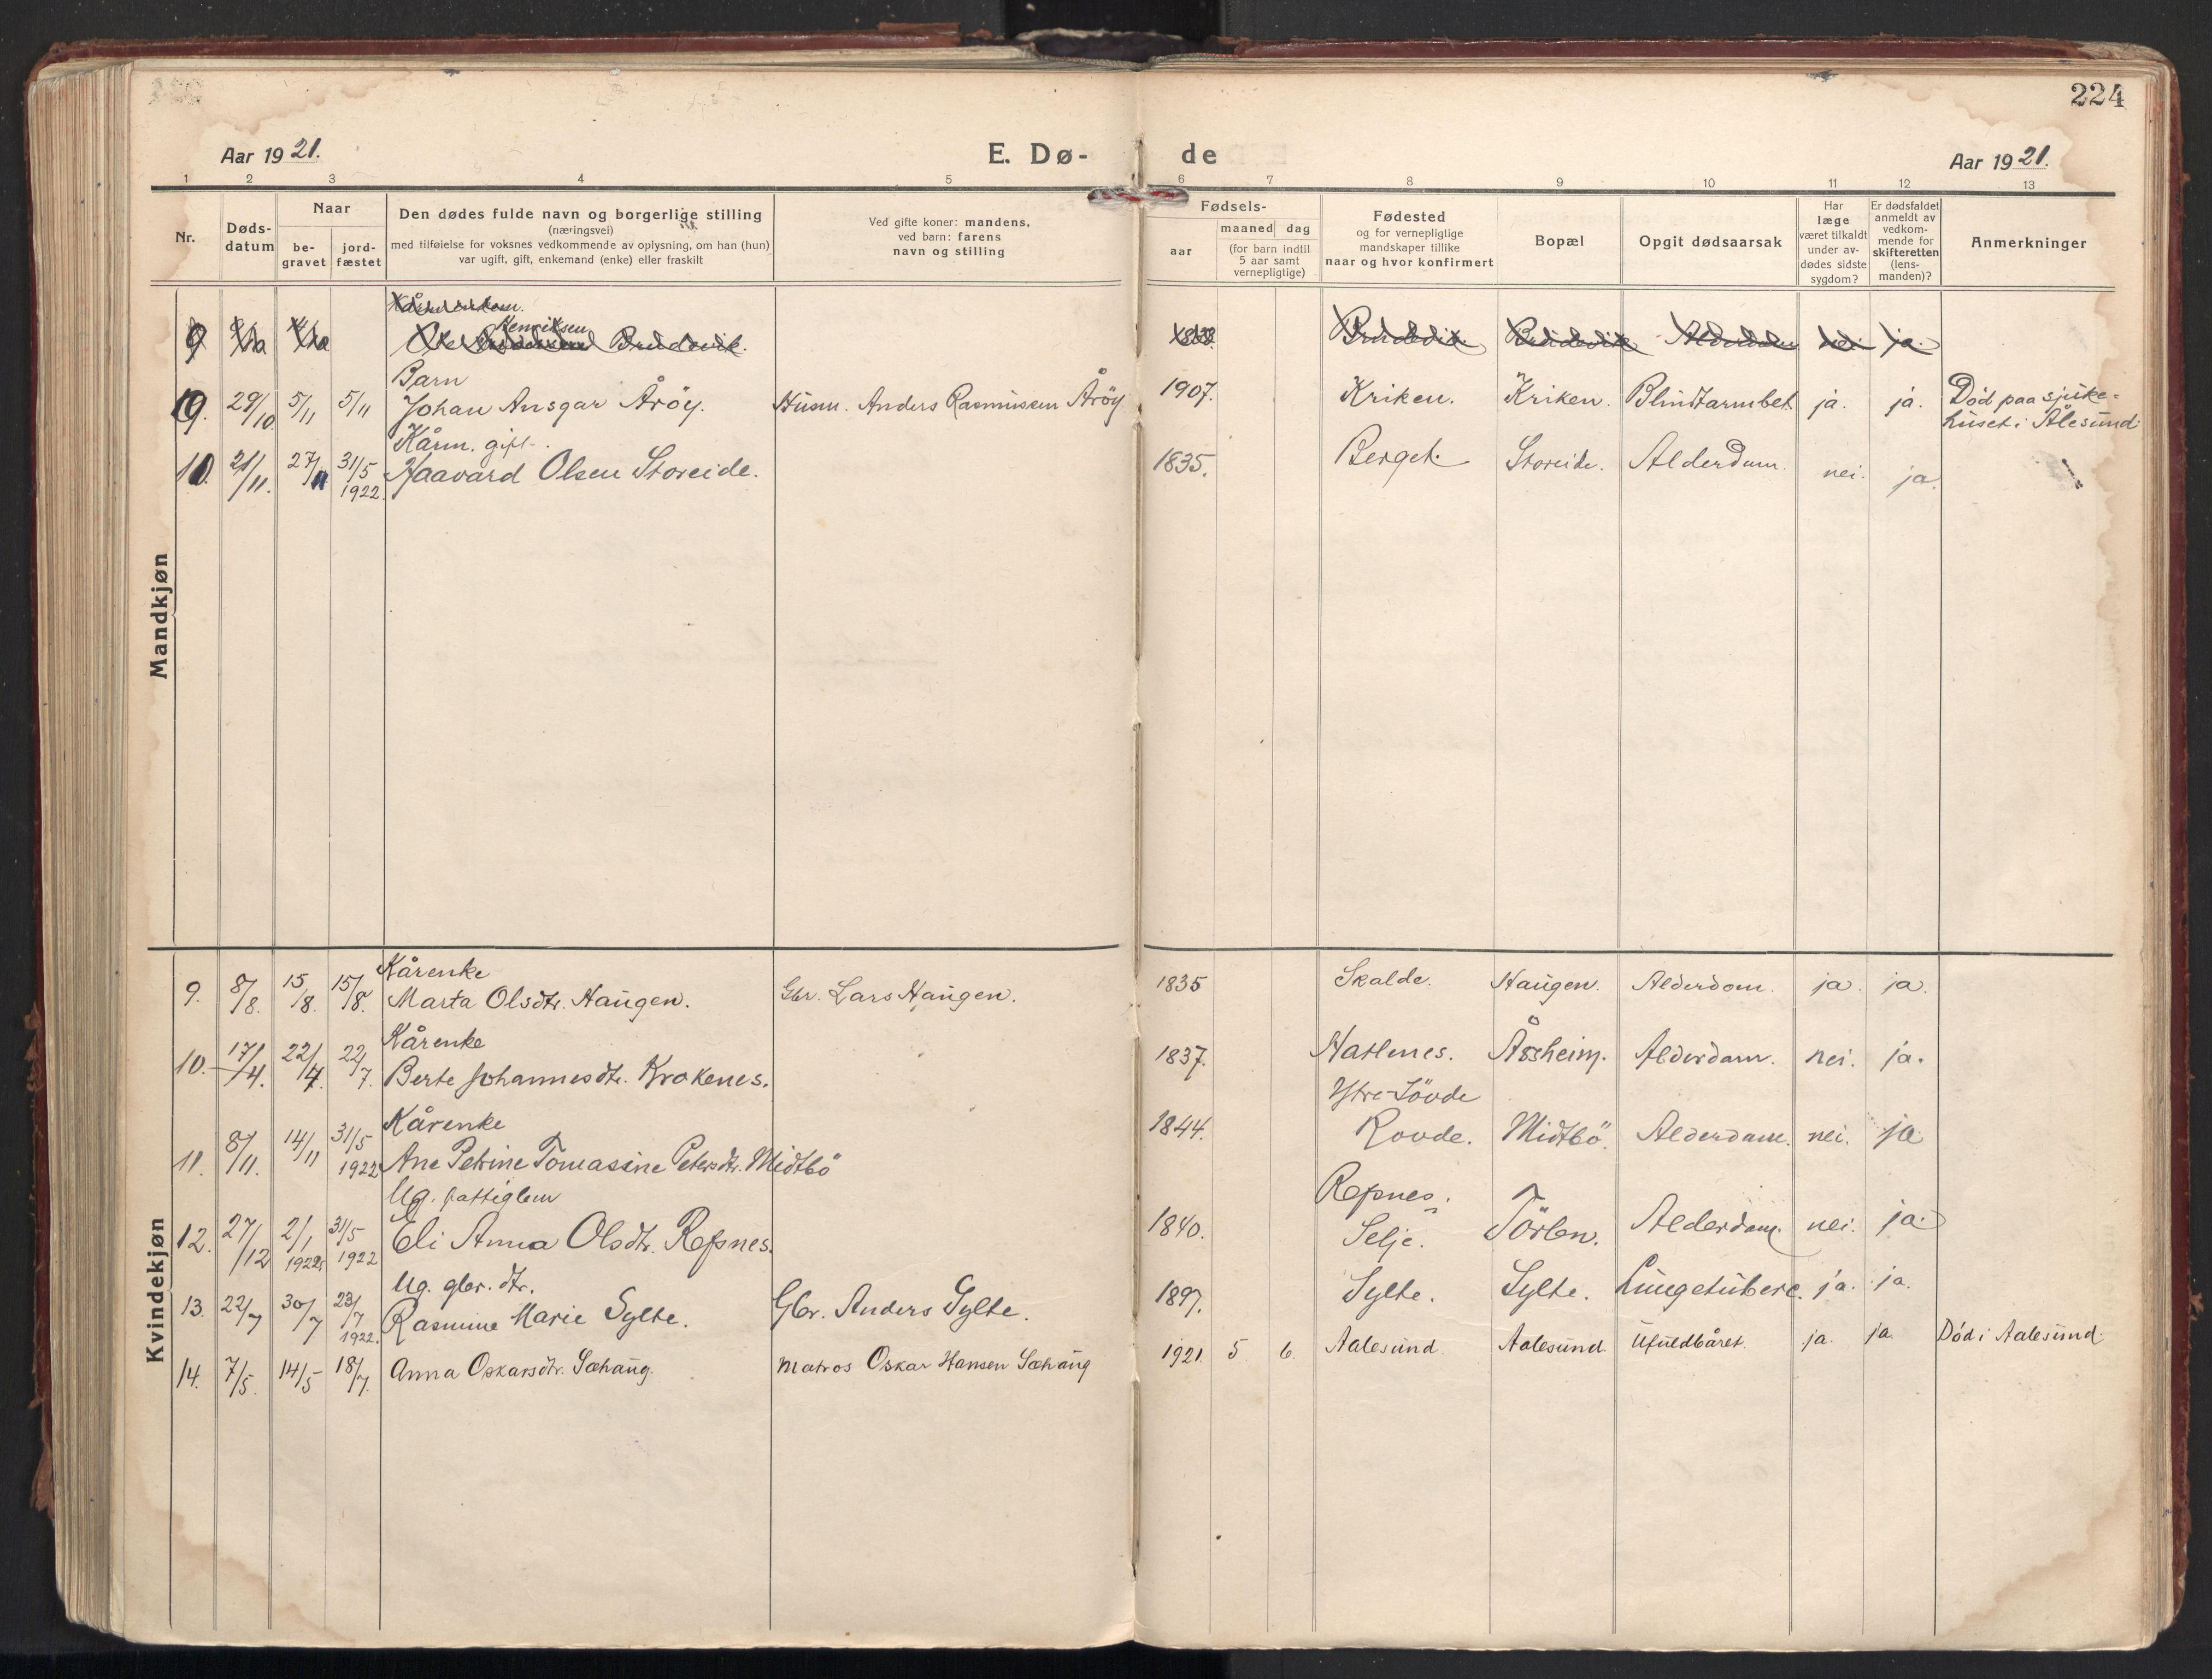 224
Aar 1921. E. Dø- de Aar 1921.
1 2 3 4 5 6 7 8 9 10 11 12 13
Nr. Døds-datum Naar be-gravet jord-fæstet Den dødes fulde navn og borgerlige stilling (næringsvei) med tilføielse for voksnes vedkommende av oplysning, om han (hun) var ugift, gift, enkemand (enke) eller fraskilt Ved gifte koner: mandens, ved barn: farens navn og stilling Fødsels- aar maaned dag (for barn indtil 5 aar samt vernepligtige) Fødested og for vernepligtige mandskaper tillike naar og hvor konfirmert Bopæl Opgit dødsaarsak Har læge været tilkaldt under av-dødes sidste sygdom? Er dødsfaldet anmeldt av vedkom-mende for skifteretten (lens-manden)? Anmerkninger
Mandkjøn
9 Henriksen Brudevik. Brudevik Brudevik Alderdom nei. ja.
Barn
9. 29/10 5/11 5/11 Johan Ansgar Åröy. Husm. Anders Rasmussen Åröy 1907. Kriken. Kriken. Blindtarmbet. ja. ja. Död paa sjuke-
huset i Ålesund.
Kårm. gift.
10. 21/11. 27/11 31/5 1922. Haavard Olsen Storeide. 1835. Berget. Storeide. Alderdom. nei. ja.
Kvindekjøn
Kårenke
9. 8/8. 15/8. 15/8. Marta Olsdtr. Haugen. Gbr. Lars Haugen. 1835 Skalde. Haugen. Alderdom. ja. ja.
Kårenke
10. 17/4. 22/4. 22/7. Berte Johannesdtr. Krokenes. 1837. Hatlenes. Åssheim. Alderdam. nei. ja.
Kårenke Ytre-Sövde
11. 8/11. 14/11 31/5 1922 Ane Petrine Tomasine Petersdtr. Midtbö 1844. Rovde. Midtbö. Alderdam. nei. ja
Ug. fattiglem Refsnes.
12. 27/12 2/1 1922. 31/5 1922 Eli Anna Olsdtr. Refsnes. 1840. Selje. Alderdam. nei. ja.
Ug. gbr. dtr.
13. 22/7 30/7 23/7 1922. Rasmine Marie Sylte. Gbr. Anders Sylte. 1897. Sylte. Sylte. Lungetuberc. ja. ja.
14. 7/5. 14/5 18/7. Anna Oskarsdtr. Sæhaug. Matros Oskar Hansen Sæhaug 1921. 5 6 Aalesund. Aalesund. Ufuldbåret. ja. ja. Död i Aalesund.